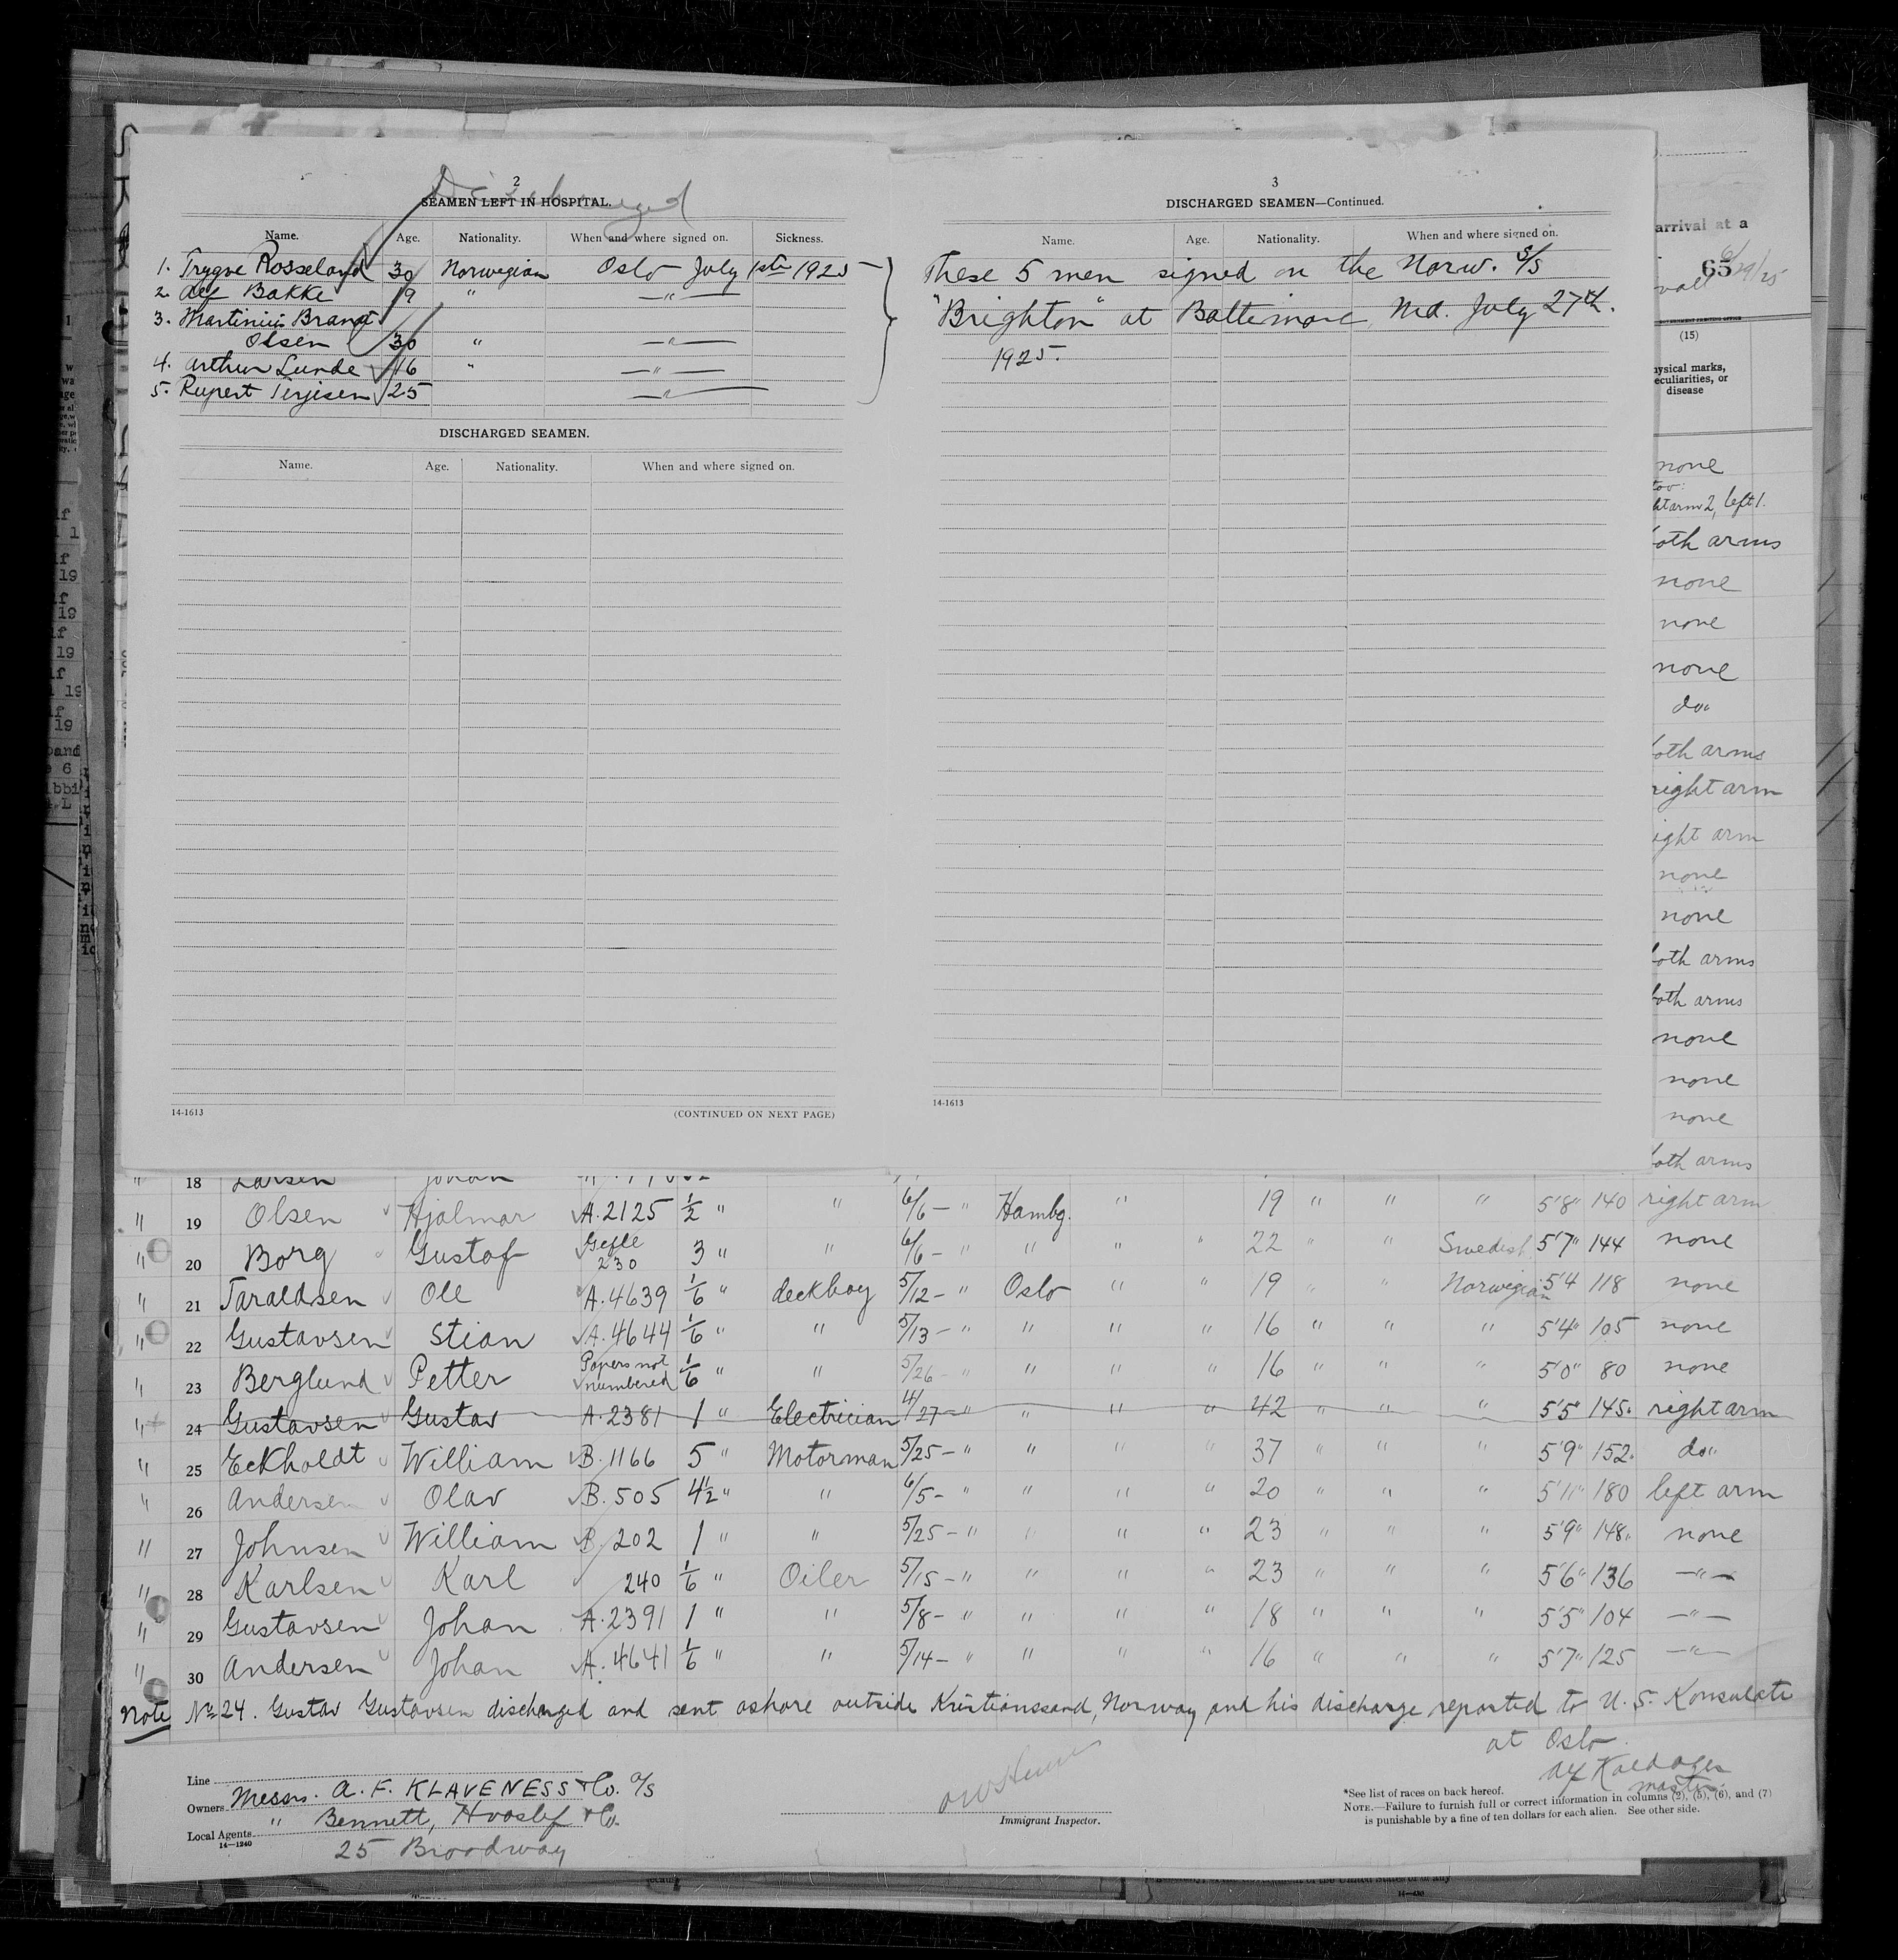 2
Discharged
SEAMEN LEFT IN HOSPITAL.
Name. Age. Nationality. When and where signed on. Sickness.
1. Trygve Rosseland 30 Norwegian Oslo July 1st 1925
2. Alf Bakke 19 " — " —
3. Martinius Brandt
Olsen 30 " — " —
4. Arthur Lunde 16 " — " —
5. Rupert Terjesen 25 — " —
DISCHARGED SEAMEN.
Name. Age. Nationality. When and where signed on.
14-1613 (CONTINUED ON NEXT PAGE)
3
DISCHARGED SEAMEN—Continued.
Name. Age. Nationality. When and where signed on.
These 5 men signed on the Norw. S/S
"Brighton" at Baltimore, Md. July 27th.
1925.
14-1613
arrival at a
65
(15)
physical marks,
peculiarities, or
disease
none
left 1.
both arms
none
none
none
do "
both arms
right arm
right arm
none
none
both arms
both arms
none
none
none
both arms
" 18 Larsen Johan
" 19 Olsen Hjalmar A. 2125 1/2 " " 6/6 — " Hambg. " 19 " " " 5'8" 140 right arm
" 20 Borg Gustaf Gefle 230 3 " " 6/6 - " " " " 22 " " Swedish 5'7" 144 none
" 21 Taraldsen Ole A. 4639 1/6 " deckboy 5/12 - " Oslo " " 19 " " Norwegian 5'4 118 none
" 22 Gustavsen Stian A. 4644 1/6 " " 5/13 - " " " " 16 " " " 5'4" 105 none
" 23 Berglund Petter Papers not numbered 1/6 " " 5/26 - " " " " 16 " " " 5'0" 80 none
" 24 Gustavsen Gustav A. 2381 1 " Electrician 4/27 - " " " " 42 " " " 5'5" 145. right arm
" 25 Eckholdt William B. 1166 5 " Motorman 5/25 - " " " " 37 " " " 5'9" 152. do "
" 26 Andersen Olav B. 505 4 1/2 " " 6/5 - " " " " 20 " " " 5'11" 180 left arm
" 27 Johnsen William B. 202 1 " " 5/25 - " " " " 23 " " " 5'9" 148. none
" 28 Karlsen Karl 240 1/6 " Oiler 5/15 - " " " " 23 " " " 5'6" 136 — " —
" 29 Gustavsen Johan A. 2391 1 " " 5/8 - " " " " 18 " " " 5'5" 104 — " —
" 30 Andersen Johan A. 4641 1/6 " " 5/14 - " " " " 16 " " " 5'7" 125 — " —
Note No 24. Gustav Gustavsen discharged and sent ashore outside Kristianssand, Norway and his discharge reported to U. S. Konsulate
at Oslo.
master.
Line
Owners Messrs. A. F. KLAVENESS & Co. A/S
Local Agents " Bennett, Hvoslef & Co.
14—1240
25 Broadway
Immigrant Inspector.
*See list of races on back hereof.
NOTE.—Failure to furnish full or correct information in columns (2), (5), (6), and (7)
is punishable by a fine of ten dollars for each alien. See other side.
14—430